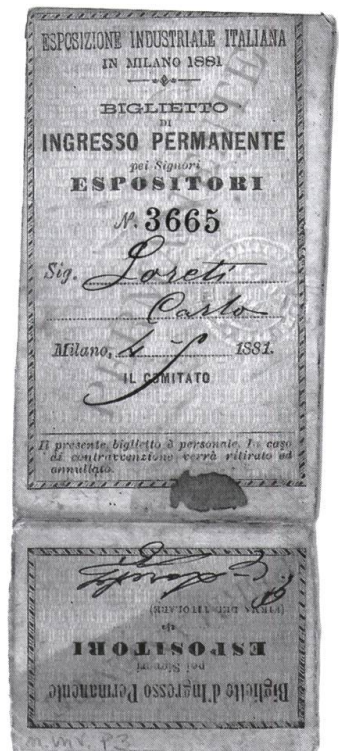 ESPOSIZIONE INDUSTRIALE ITALIANA
IN MILANO 1881
BIGLIETTO
DI
INGRESSO PERMANENTE
pei Signori
ESPOSITORI
N. 3665
Sig. Loreti
Carlo
Milano, 4 5 1881.
IL COMITATO
Il presente biglietto è personale. In caso
di contravvenzione verrà ritirato ed
annullato.
Biglietto d'Ingresso Permanente
pei Signori
ESPOSITORI
di
(FIRMA DEL TITOLARE)
n. inv. P3